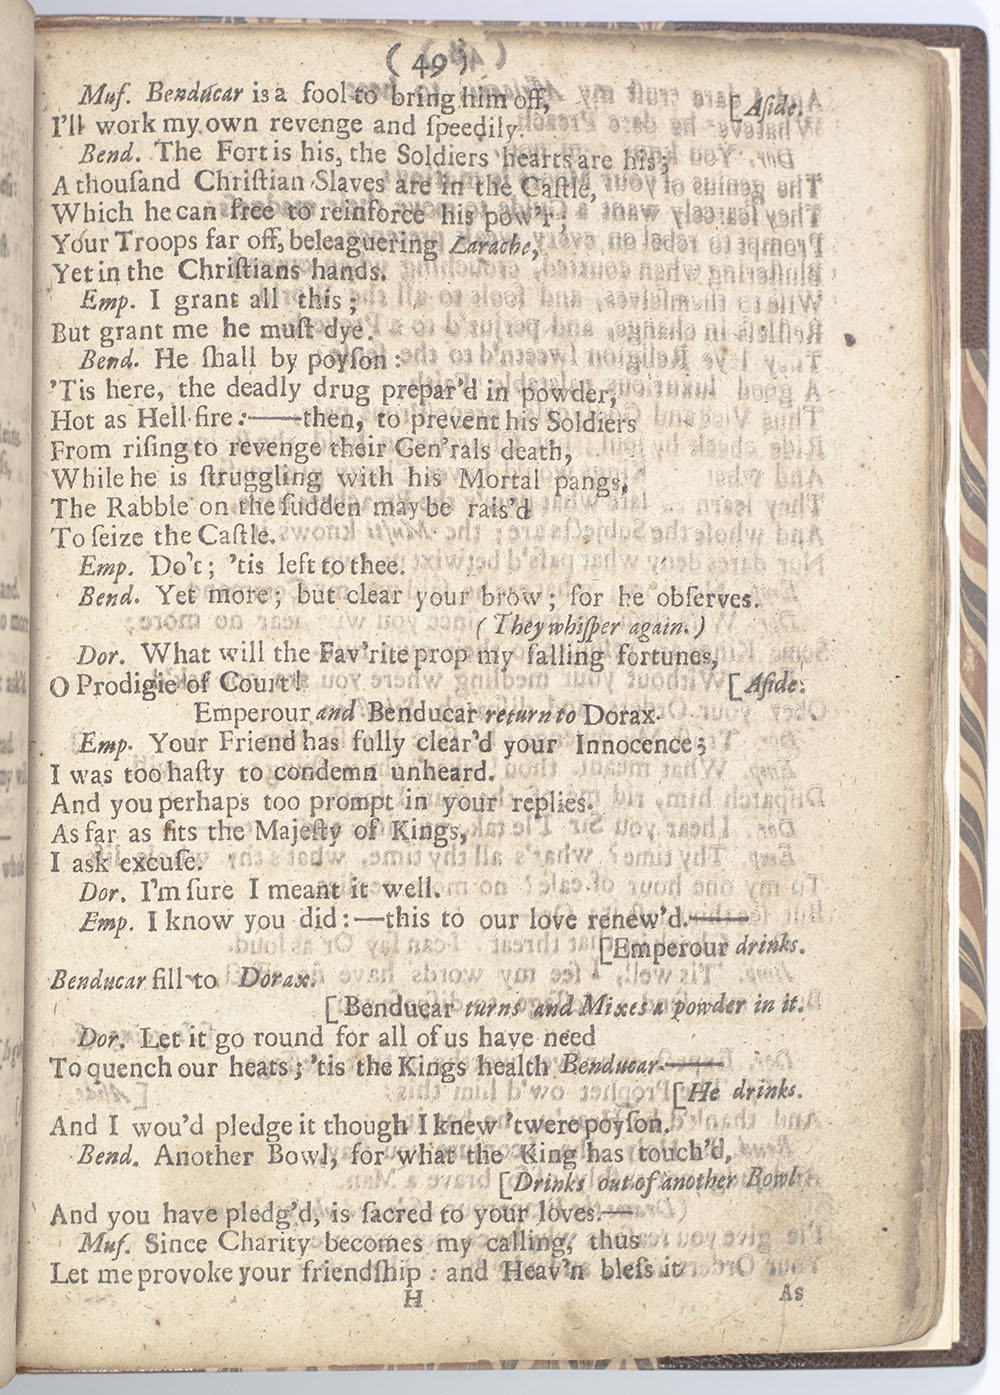 ( 49 )
Muf. Benducar is a fool to bring him off, [Aſide.
I'll work my own revenge and ſpeedily.
Bend. The Fort is his, the Soldiers hearts are his;
A thouſand Chriſtian Slaves are in the Caſtle,
Which he can free to reinforce his pow'r;
Your Troops far off, beleaguering Larache,
Yet in the Chriſtians hands.
Emp. I grant all this;
But grant me he muſt dye.
Bend. He ſhall by poyſon:
'Tis here, the deadly drug prepar'd in powder,
Hot as Hell-fire:——then, to prevent his Soldiers
From riſing to revenge their Gen'rals death,
While he is ſtruggling with his Mortal pangs,
The Rabble on the ſudden may be rais'd
To ſeize the Caſtle.
Emp. Do't; 'tis left to thee.
Bend. Yet more; but clear your brow; for he obſerves.
( They whiſper again. )
Dor. What will the Fav'rite prop my falling fortunes,
O Prodigie of Court! [Aſide.
Emperour and Benducar return to Dorax.
Emp. Your Friend has fully clear'd your Innocence;
I was too haſty to condemn unheard.
And you perhaps too prompt in your replies.
As far as fits the Majeſty of Kings,
I ask excuſe.
Dor. I'm ſure I meant it well.
Emp. I know you did:—this to our love renew'd.——
[Emperour drinks.
Benducar fill to Dorax.
[Benducar turns and Mixes a powder in it.
Dor. Let it go round for all of us have need
To quench our heats; 'tis the Kings health Benducar.——
[He drinks.
And I wou'd pledge it though I knew 'twere poyſon.
Bend. Another Bowl, for what the King has touch'd,
[Drinks out of another Bowl.
And you have pledg'd, is ſacred to your loves.—
Muf. Since Charity becomes my calling, thus
Let me provoke your friendſhip: and Heav'n bleſs it
H As